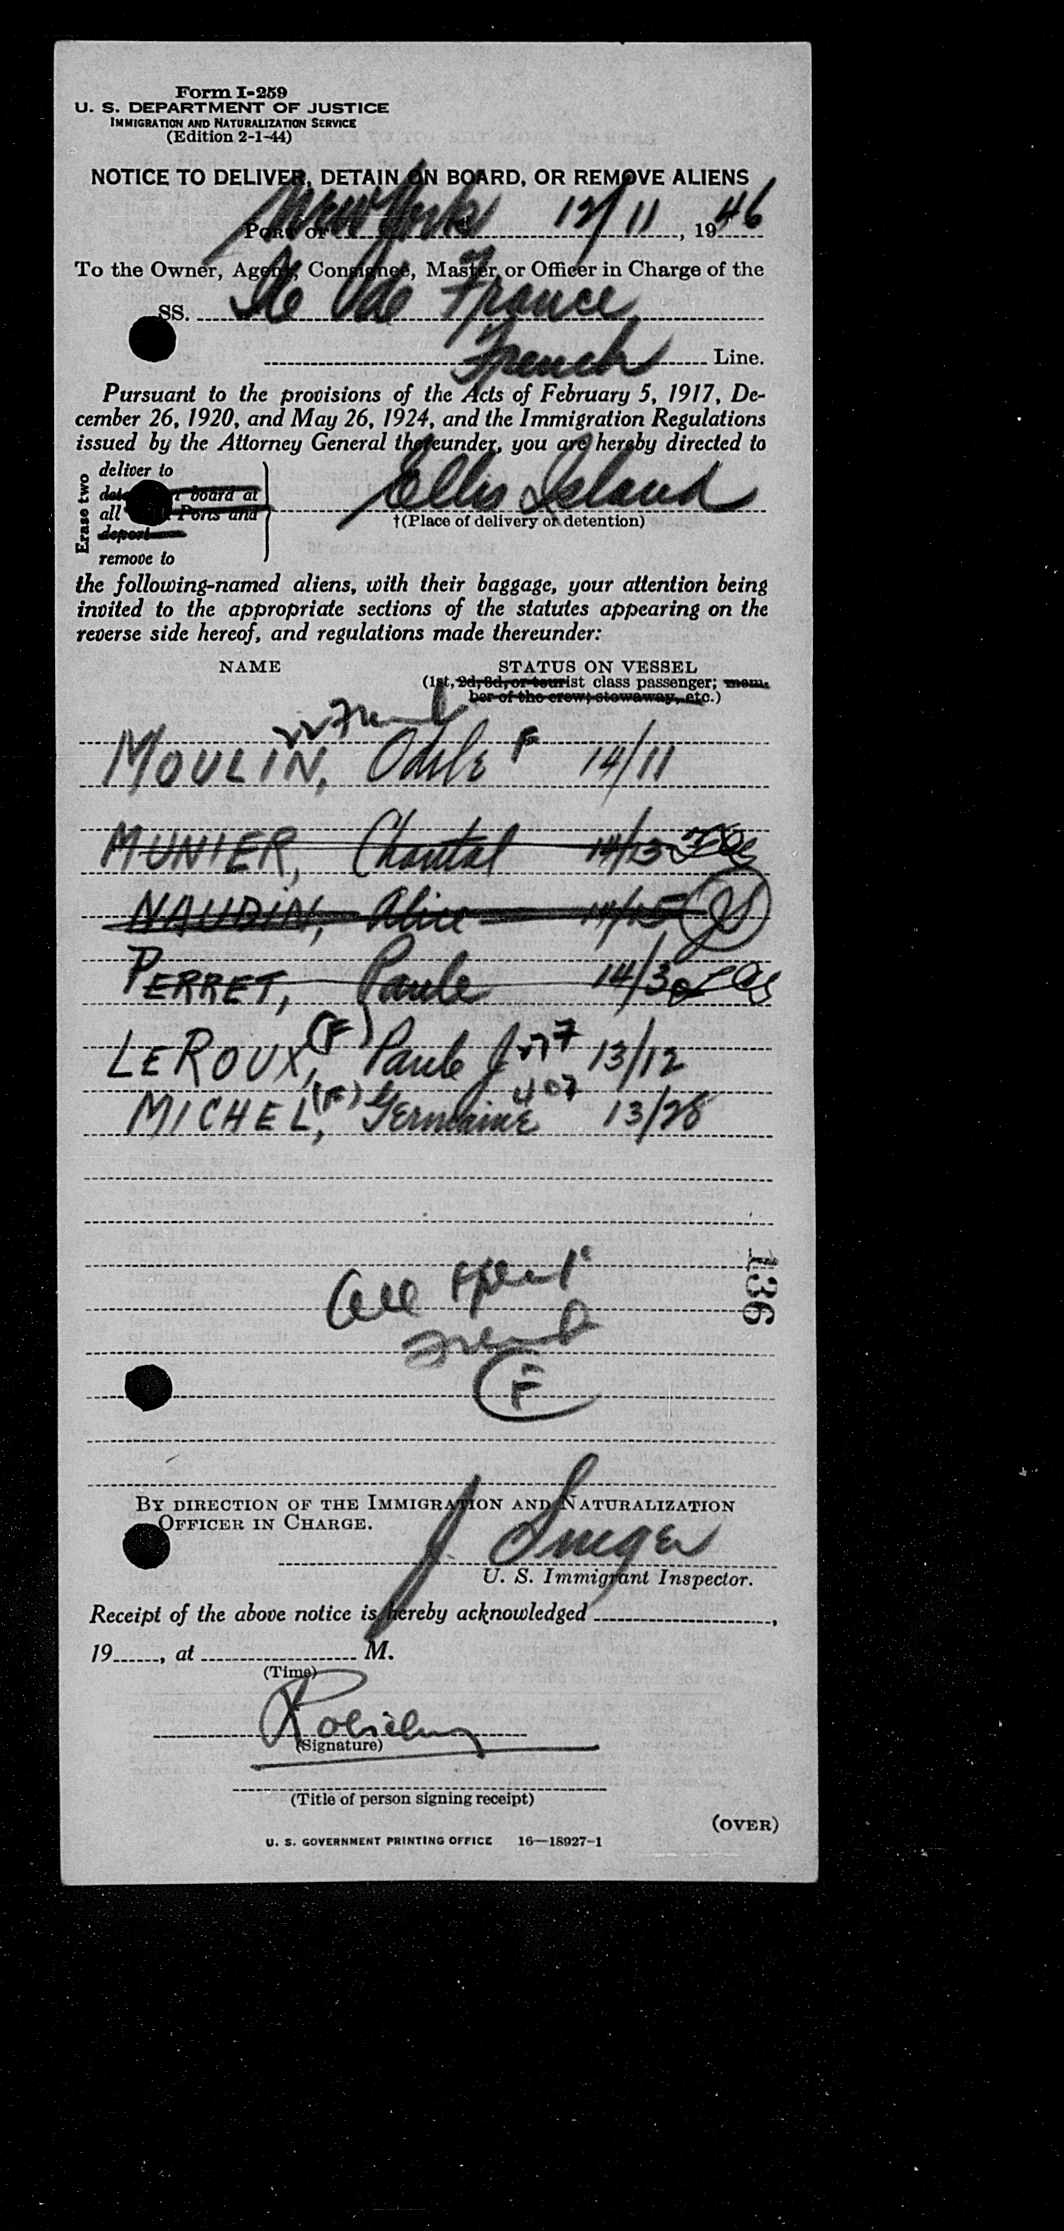 Form I-259
U. S. DEPARTMENT OF JUSTICE
IMMIGRATION AND NATURALIZATION SERVICE
(Edition 2-1-44)
NOTICE TO DELIVER, DETAIN ON BOARD, OR REMOVE ALIENS
PORT OF New York 12/11, 1946
To the Owner, Agent, Consignee, Master, or Officer in Charge of the
SS. Ile de France
French Line.
Pursuant to the provisions of the Acts of February 5, 1917, De-
cember 26, 1920, and May 26, 1924, and the Immigration Regulations
issued by the Attorney General thereunder, you are hereby directed to
Erase two
deliver to
board at
all Ports and
deport
remove to
Ellis Island
†(Place of delivery or detention)
the following-named aliens, with their baggage, your attention being
invited to the appropriate sections of the statutes appearing on the
reverse side hereof, and regulations made thereunder:
NAME STATUS ON VESSEL
(1st, 2d, 3d, or tourist class passenger; mem-
ber of the crew; stowaway, etc.)
MOULIN, Odile F 14/11
MUNIER, Chantal 14/13
NAUDIN, Alice 14/15
PERRET, Paule 14/30
LEROUX, (F) Paule J 13/12
MICHEL, (F) Germaine 407 13/28
All
French
F
136
BY DIRECTION OF THE IMMIGRATION AND NATURALIZATION
OFFICER IN CHARGE.
J.
U. S. Immigrant Inspector.
Receipt of the above notice is hereby acknowledged ,
19 , at M.
(Time)
(Signature)
(Title of person signing receipt)
(OVER)
U. S. GOVERNMENT PRINTING OFFICE 16—18927-1